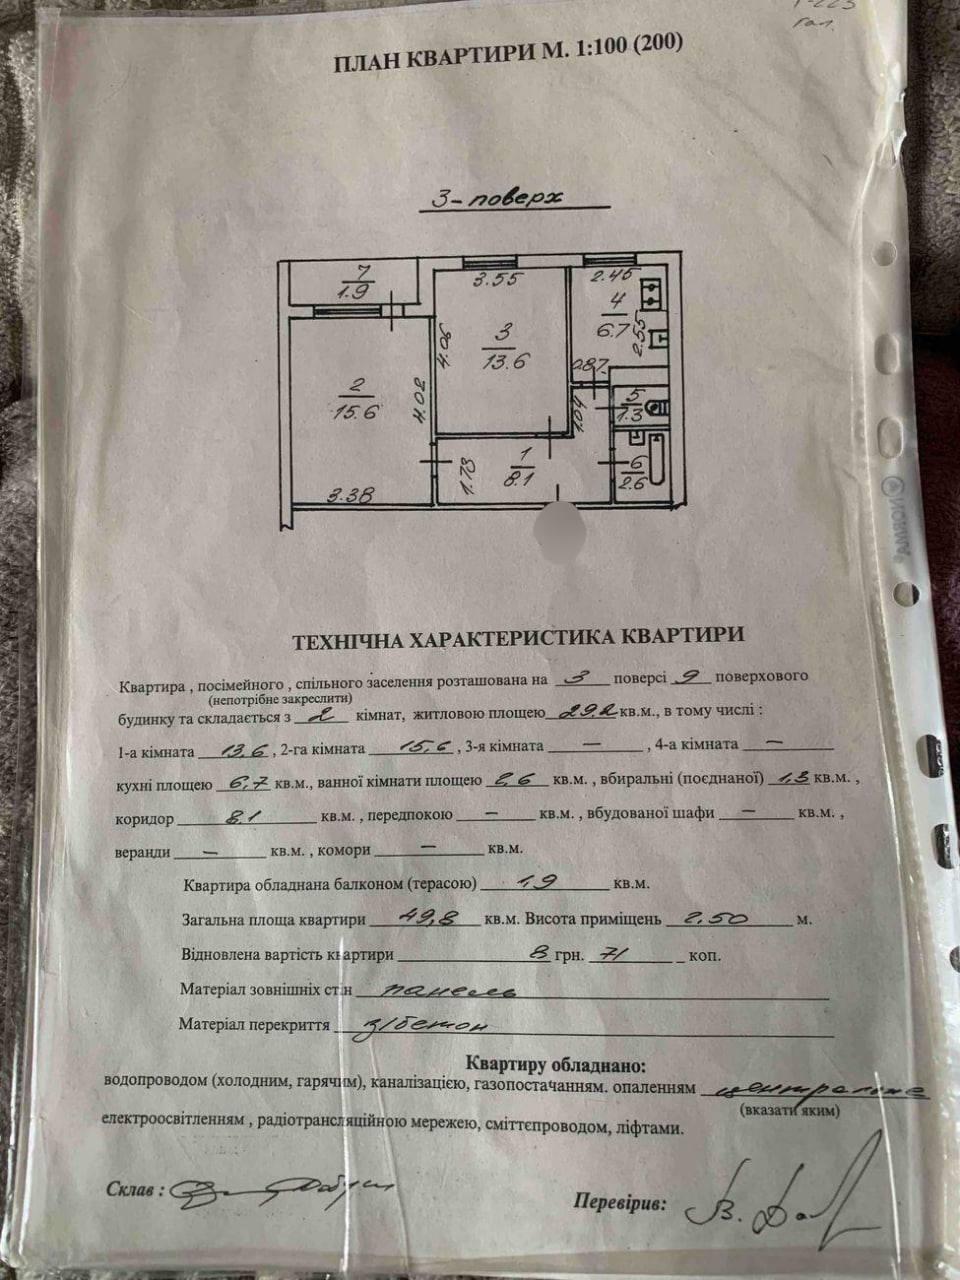 Г-223
гал.
ПЛАН КВАРТИРИ М. 1:100 (200)
3-поверх
7
1.9
3.55
2.45
4
6.7
2.55
3
13.6
4.06
0.87
2
15.6
4.02
1.04
5
1.3
1
8.1
1.78
6
2.6
3.38
НОЯМА
ТЕХНІЧНА ХАРАКТЕРИСТИКА КВАРТИРИ
Квартира , посімейного , спільного заселення розташована на 3 поверсі 9 поверхового
(непотрібне закреслити)
будинку та складається з 2 кімнат, житловою площею 29.2 кв.м., в тому числі :
1-а кімната 13,6 , 2-га кімната 15,6 , 3-я кімната — , 4-а кімната —
кухні площею 6,7 кв.м., ванної кімнати площею 2,6 кв.м. , вбиральні (поєднаної) 1,3 кв.м. ,
коридор 8.1 кв.м. , передпокою — кв.м. , вбудованої шафи — кв.м. ,
веранди — кв.м. , комори — кв.м.
Квартира обладнана балконом (терасою) 1,9 кв.м.
Загальна площа квартири 49,8 кв.м. Висота приміщень 2.50 м.
Відновлена вартість квартири 8 грн. 71 коп.
Матеріал зовнішніх стін панель
Матеріал перекриття з/бетон
Квартиру обладнано:
водопроводом (холодним, гарячим), каналізацією, газопостачанням. опаленням центральне
(вказати яким)
електроосвітленням , радіотрансляційною мережею, сміттєпроводом, ліфтами.
Склав :
Перевірив: